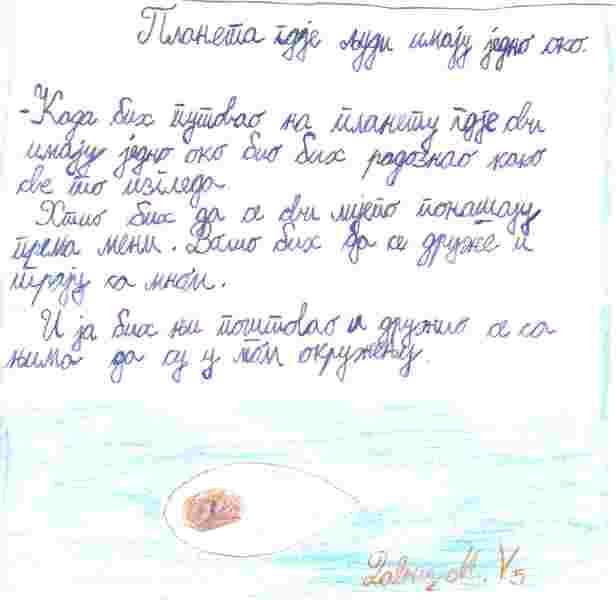 Планета гдје људи имају једно око.
-Када бих путовао на планету гдје сви
имају једно око био бих радознао како
све то изгледа.
Хтио бих да се сви лијепо понашају
према мени. Волио бих да се друже и
играју са мном.
И ја бих њи поштовао и дружио се са
њима да су у том окружењу.
V5